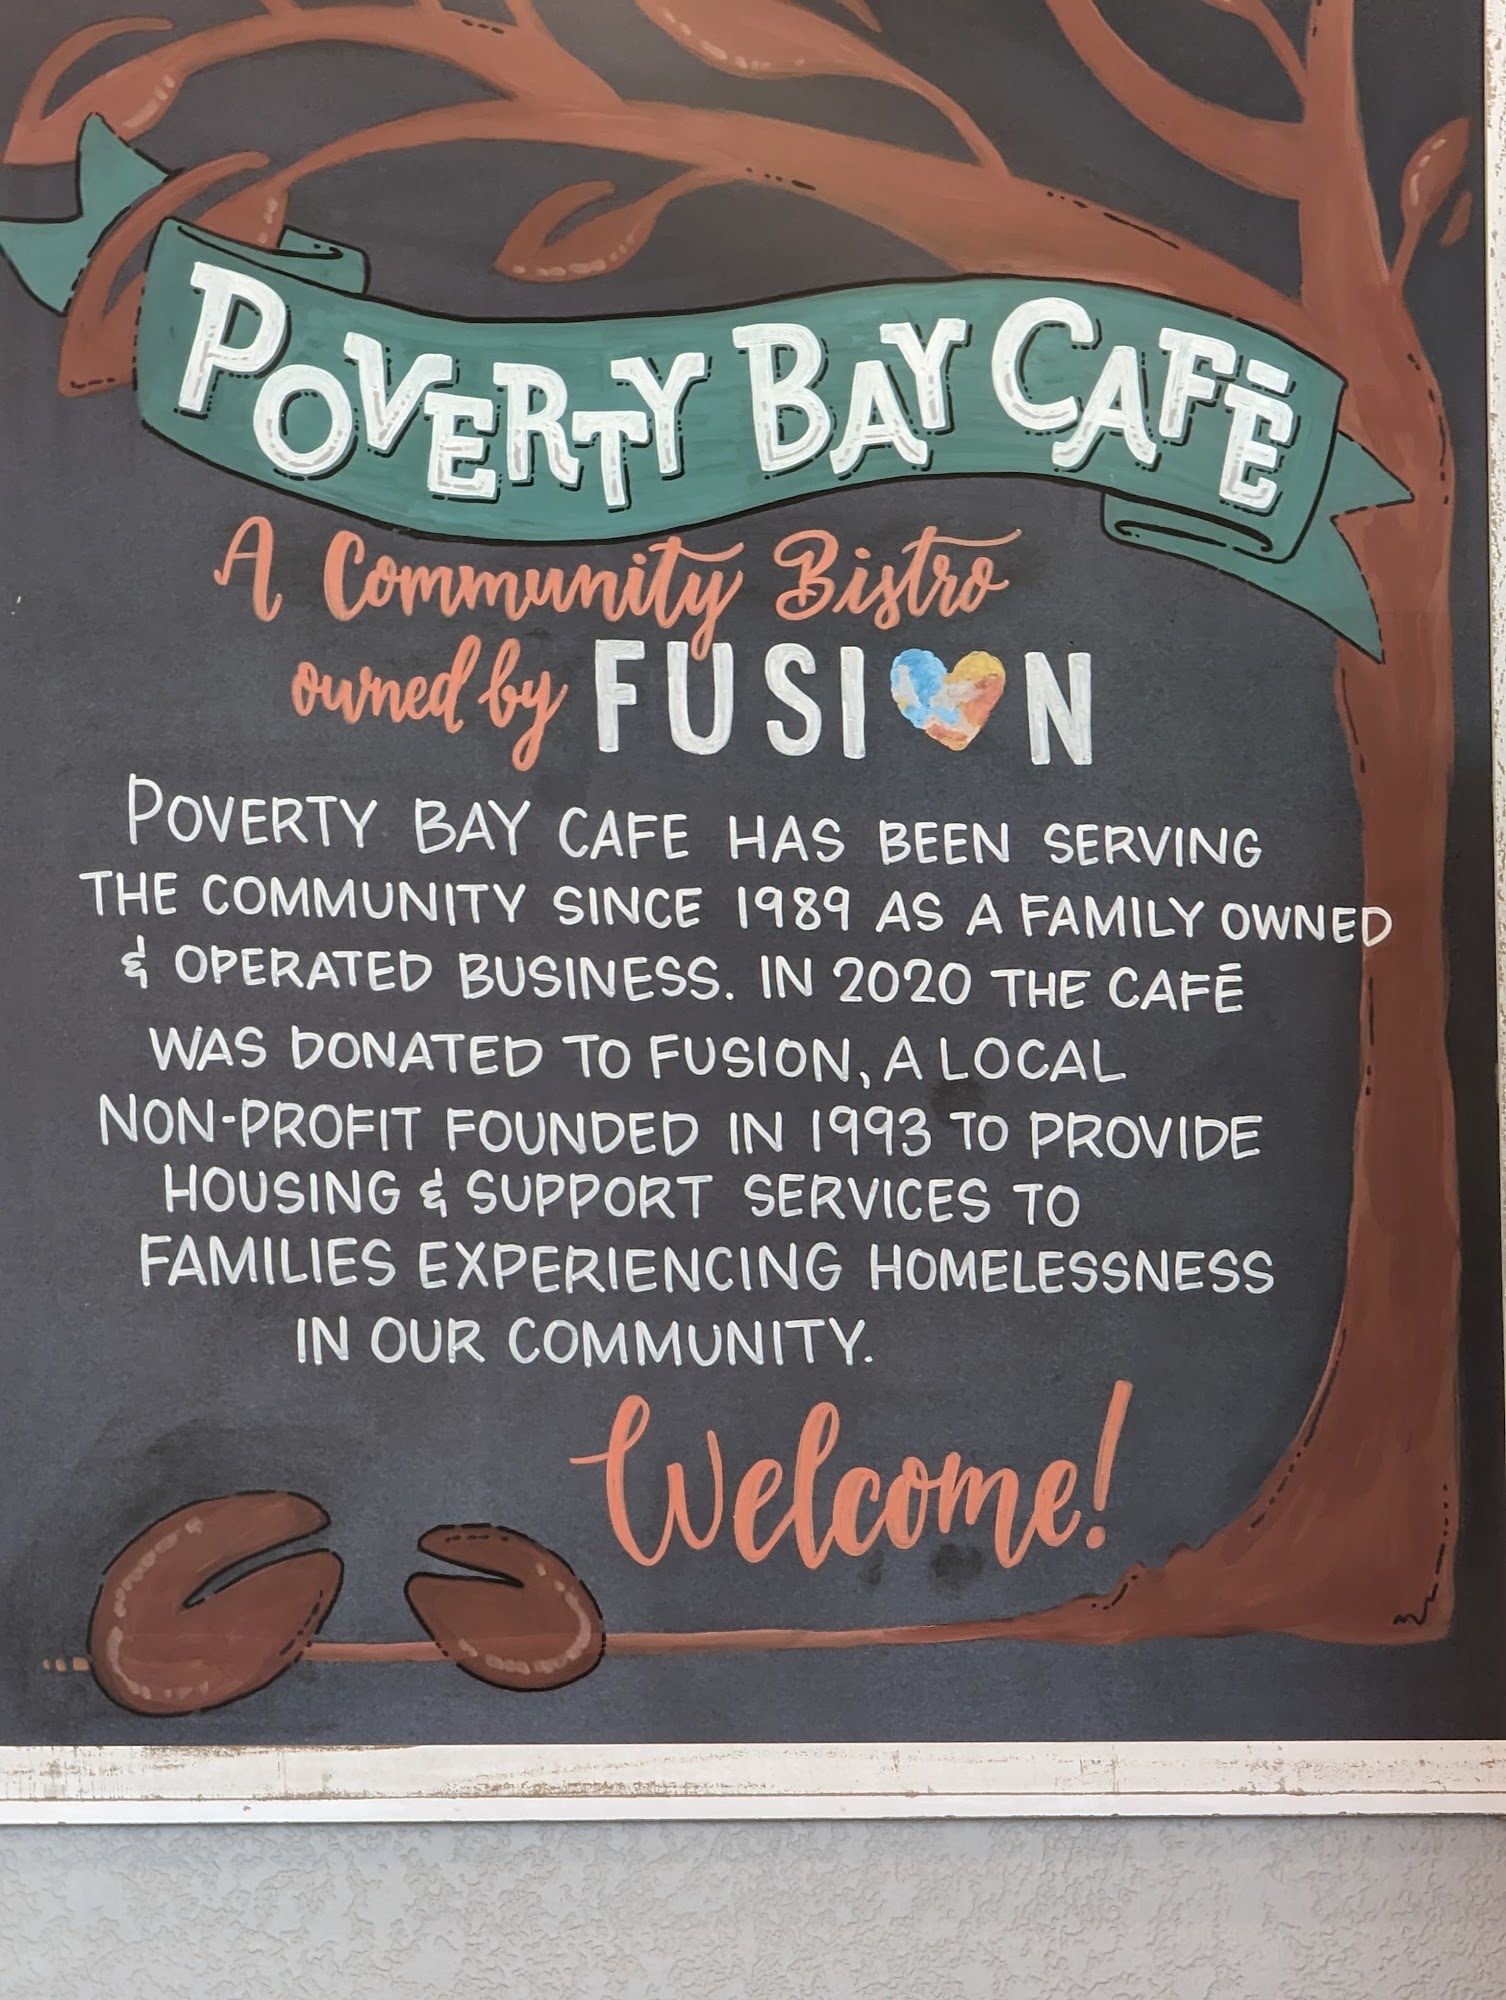 POVERTY BAY CAFÉ
A Community Bistro
owned by FUSION
POVERTY BAY CAFE HAS BEEN SERVING
THE COMMUNITY SINCE 1989 AS A FAMILY OWNED
& OPERATED BUSINESS. IN 2020 THE CAFÉ
WAS DONATED TO FUSION, A LOCAL
NON-PROFIT FOUNDED IN 1993 TO PROVIDE
HOUSING & SUPPORT SERVICES TO
FAMILIES EXPERIENCING HOMELESSNESS
IN OUR COMMUNITY.
Welcome!